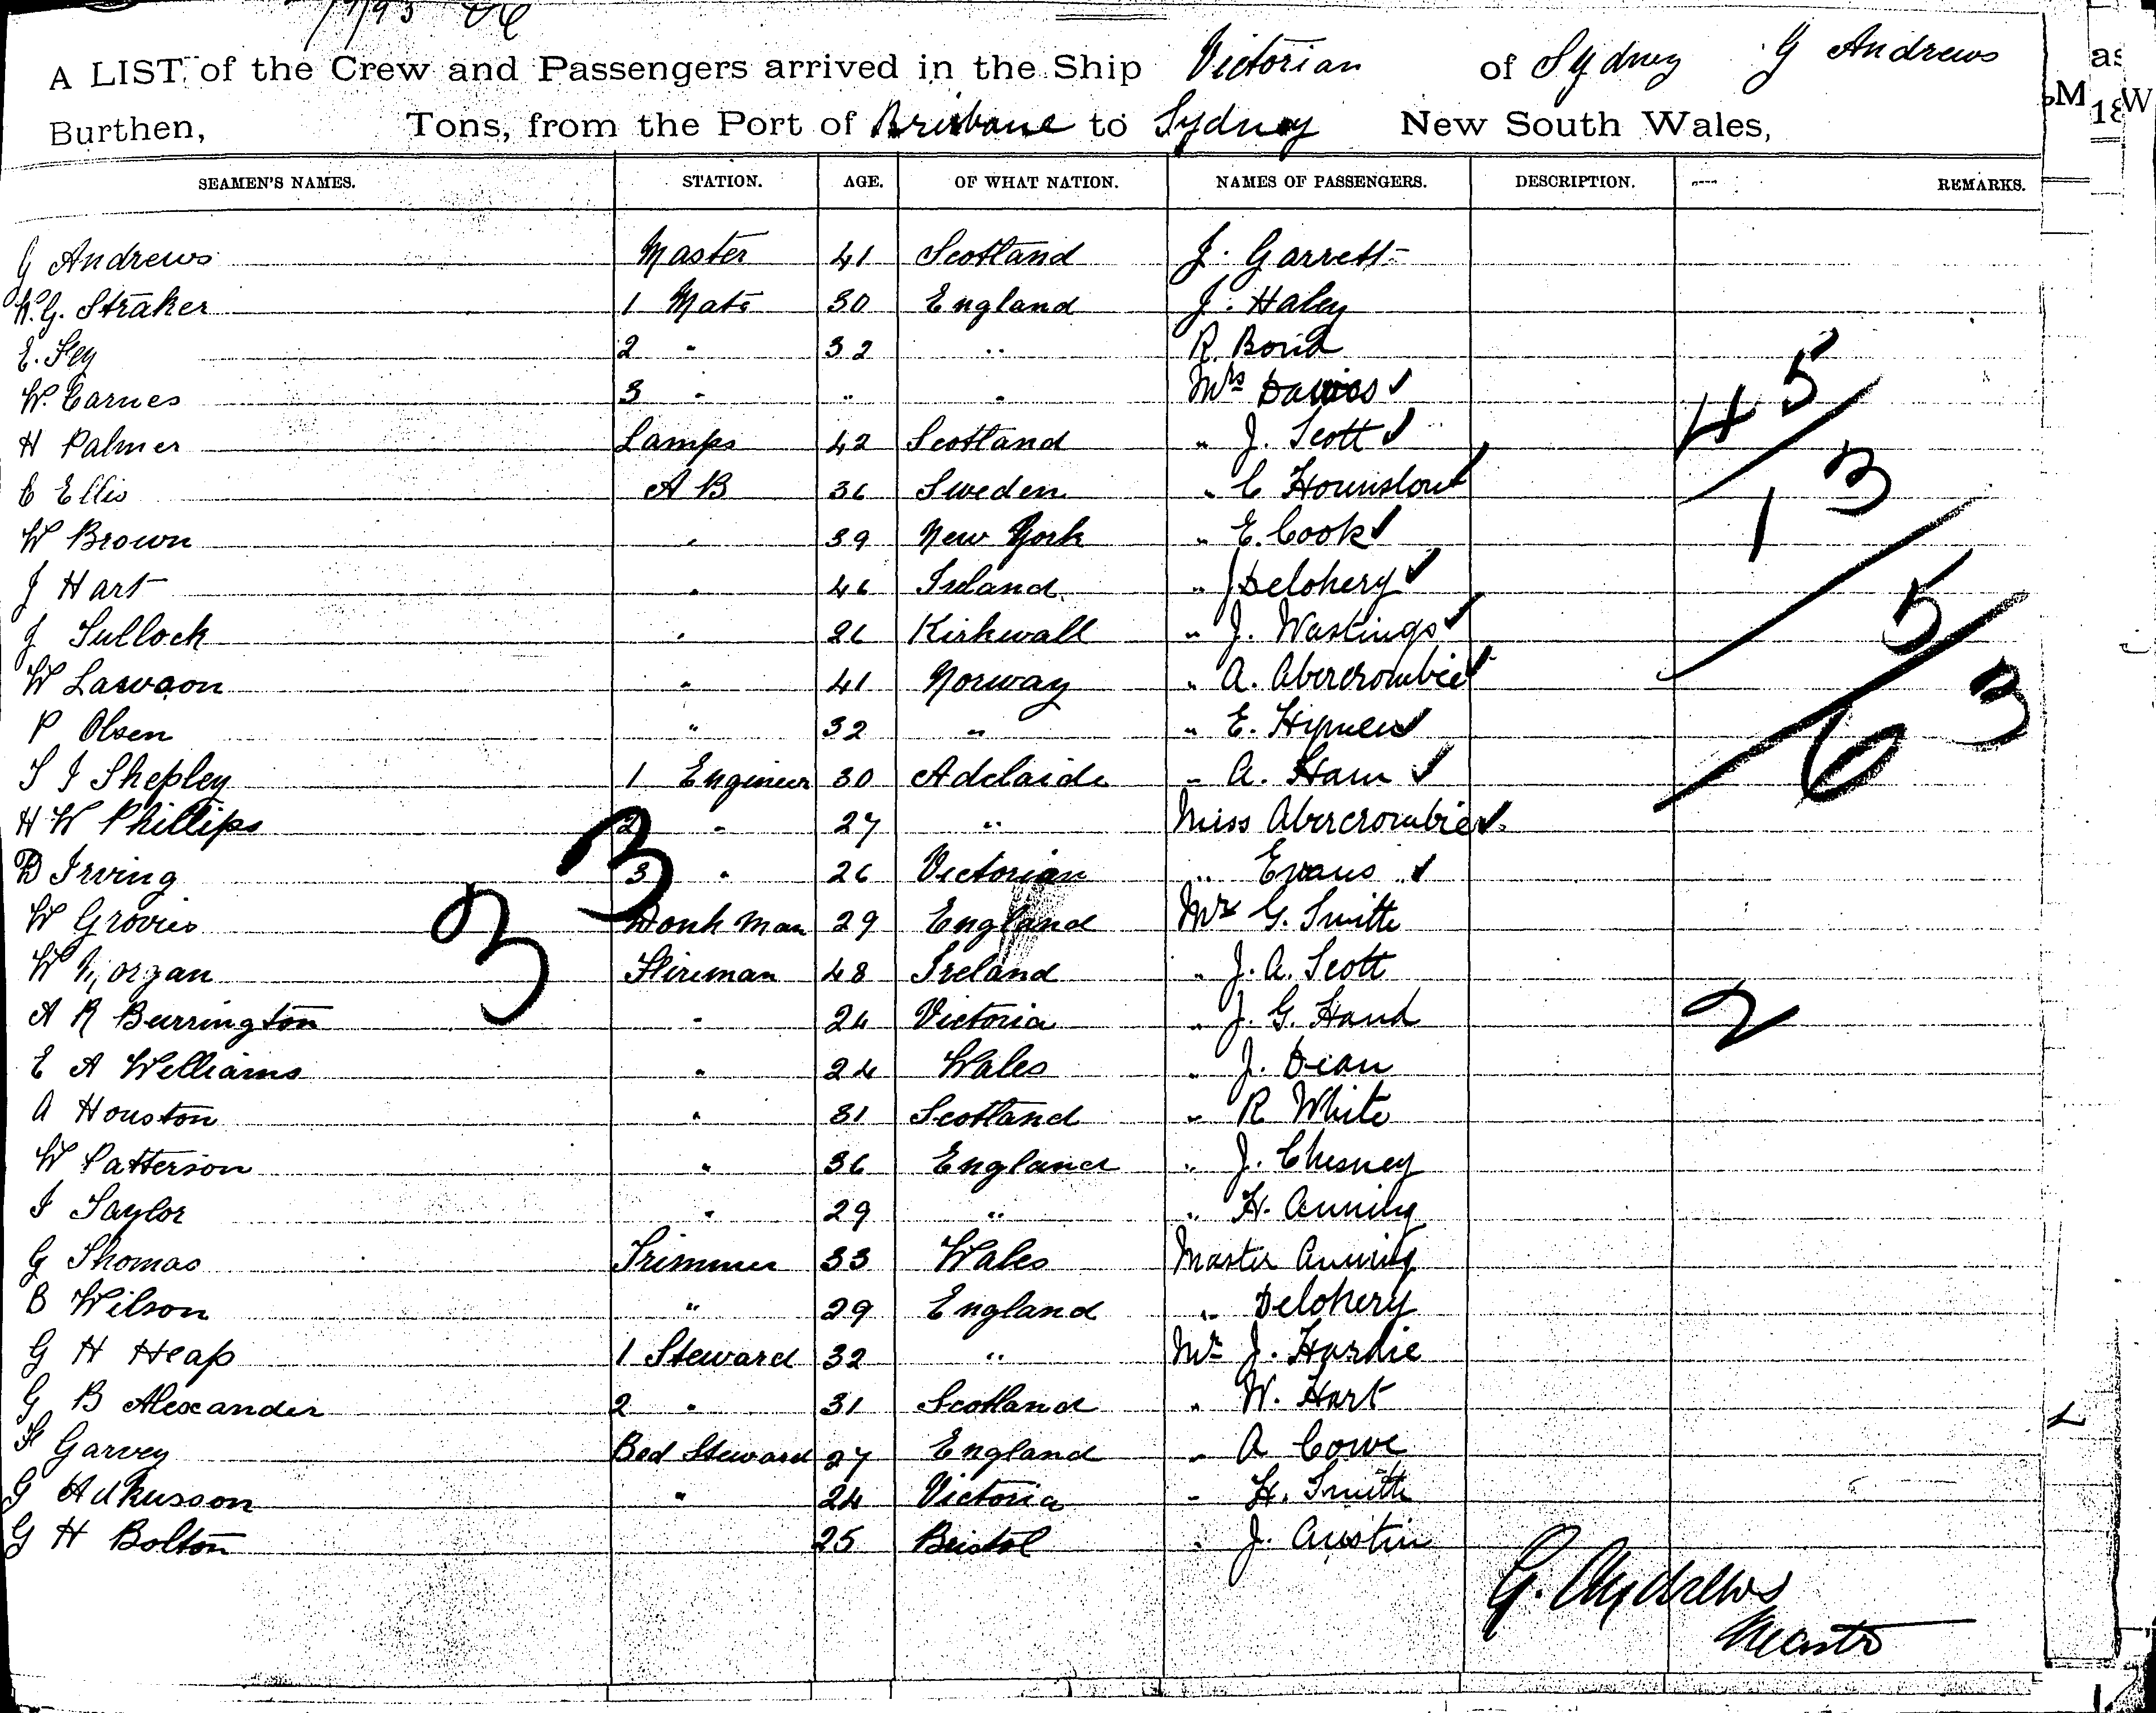 1/1/93
A LIST of the Crew and Passengers arrived in the Ship Victorian of Sydney G Andrews
Burthen, Tons, from the Port of Brisbane to Sydney New South Wales,
SEAMEN'S NAMES. STATION. AGE. OF WHAT NATION. NAMES OF PASSENGERS. DESCRIPTION. REMARKS.
G Andrews Master 41 Scotland J. Garrett
W.G. Straker 1 Mate 30 England J. Haley
E. Fey 2 " 32 " R. Borid
W. Carnes 3 " " " Mrs Davies ✓
H Palmer Lamps 42 Scotland " J. Scott ✓
C Ellis A B 36 Sweden " C Hounslow ✓
W Brown " 39 New York " E. Cook ✓
J Hart " 46 Ireland " J Delohery ✓
J Tullock " 26 Kirkwall " J. Wastings ✓
W Lawson " 41 Norway " A. Abercrombie ✓
P Olsen " 32 " " E. ✓
T J Shepley 1 Engineer 30 Adelaide " A. Ham ✓
H W Phillips 2 " 27 " Miss Abercrombie ✓
D Irving 3 " 26 Victorian " Evans ✓
W Grovies Donk Man 29 England Mr G. Smith
W Morgan Fireman 48 Ireland " J. A. Scott
A R Burrington " 24 Victoria " J. G. Hand
E A Williams " 24 Wales " J. Dean
A Houston " 31 Scotland " R White
W Patterson " 36 England " J. Chesney
J Taylor " 29 " " H. Anning
G Thomas Trimmer 33 Wales Master Anning
B Wilson " 29 England " Delohery
G H Heap 1 Steward 32 " Mr J. Hardie
G B Alexander 2 " 31 Scotland " W. Hart
F Garvey Bed Steward 27 England " A Cowe
G " 24 Victoria " H. Smith
G H Bolton 25 Bristol " J. Austin
45
13
5
63
33
2
G. Andrews
Master